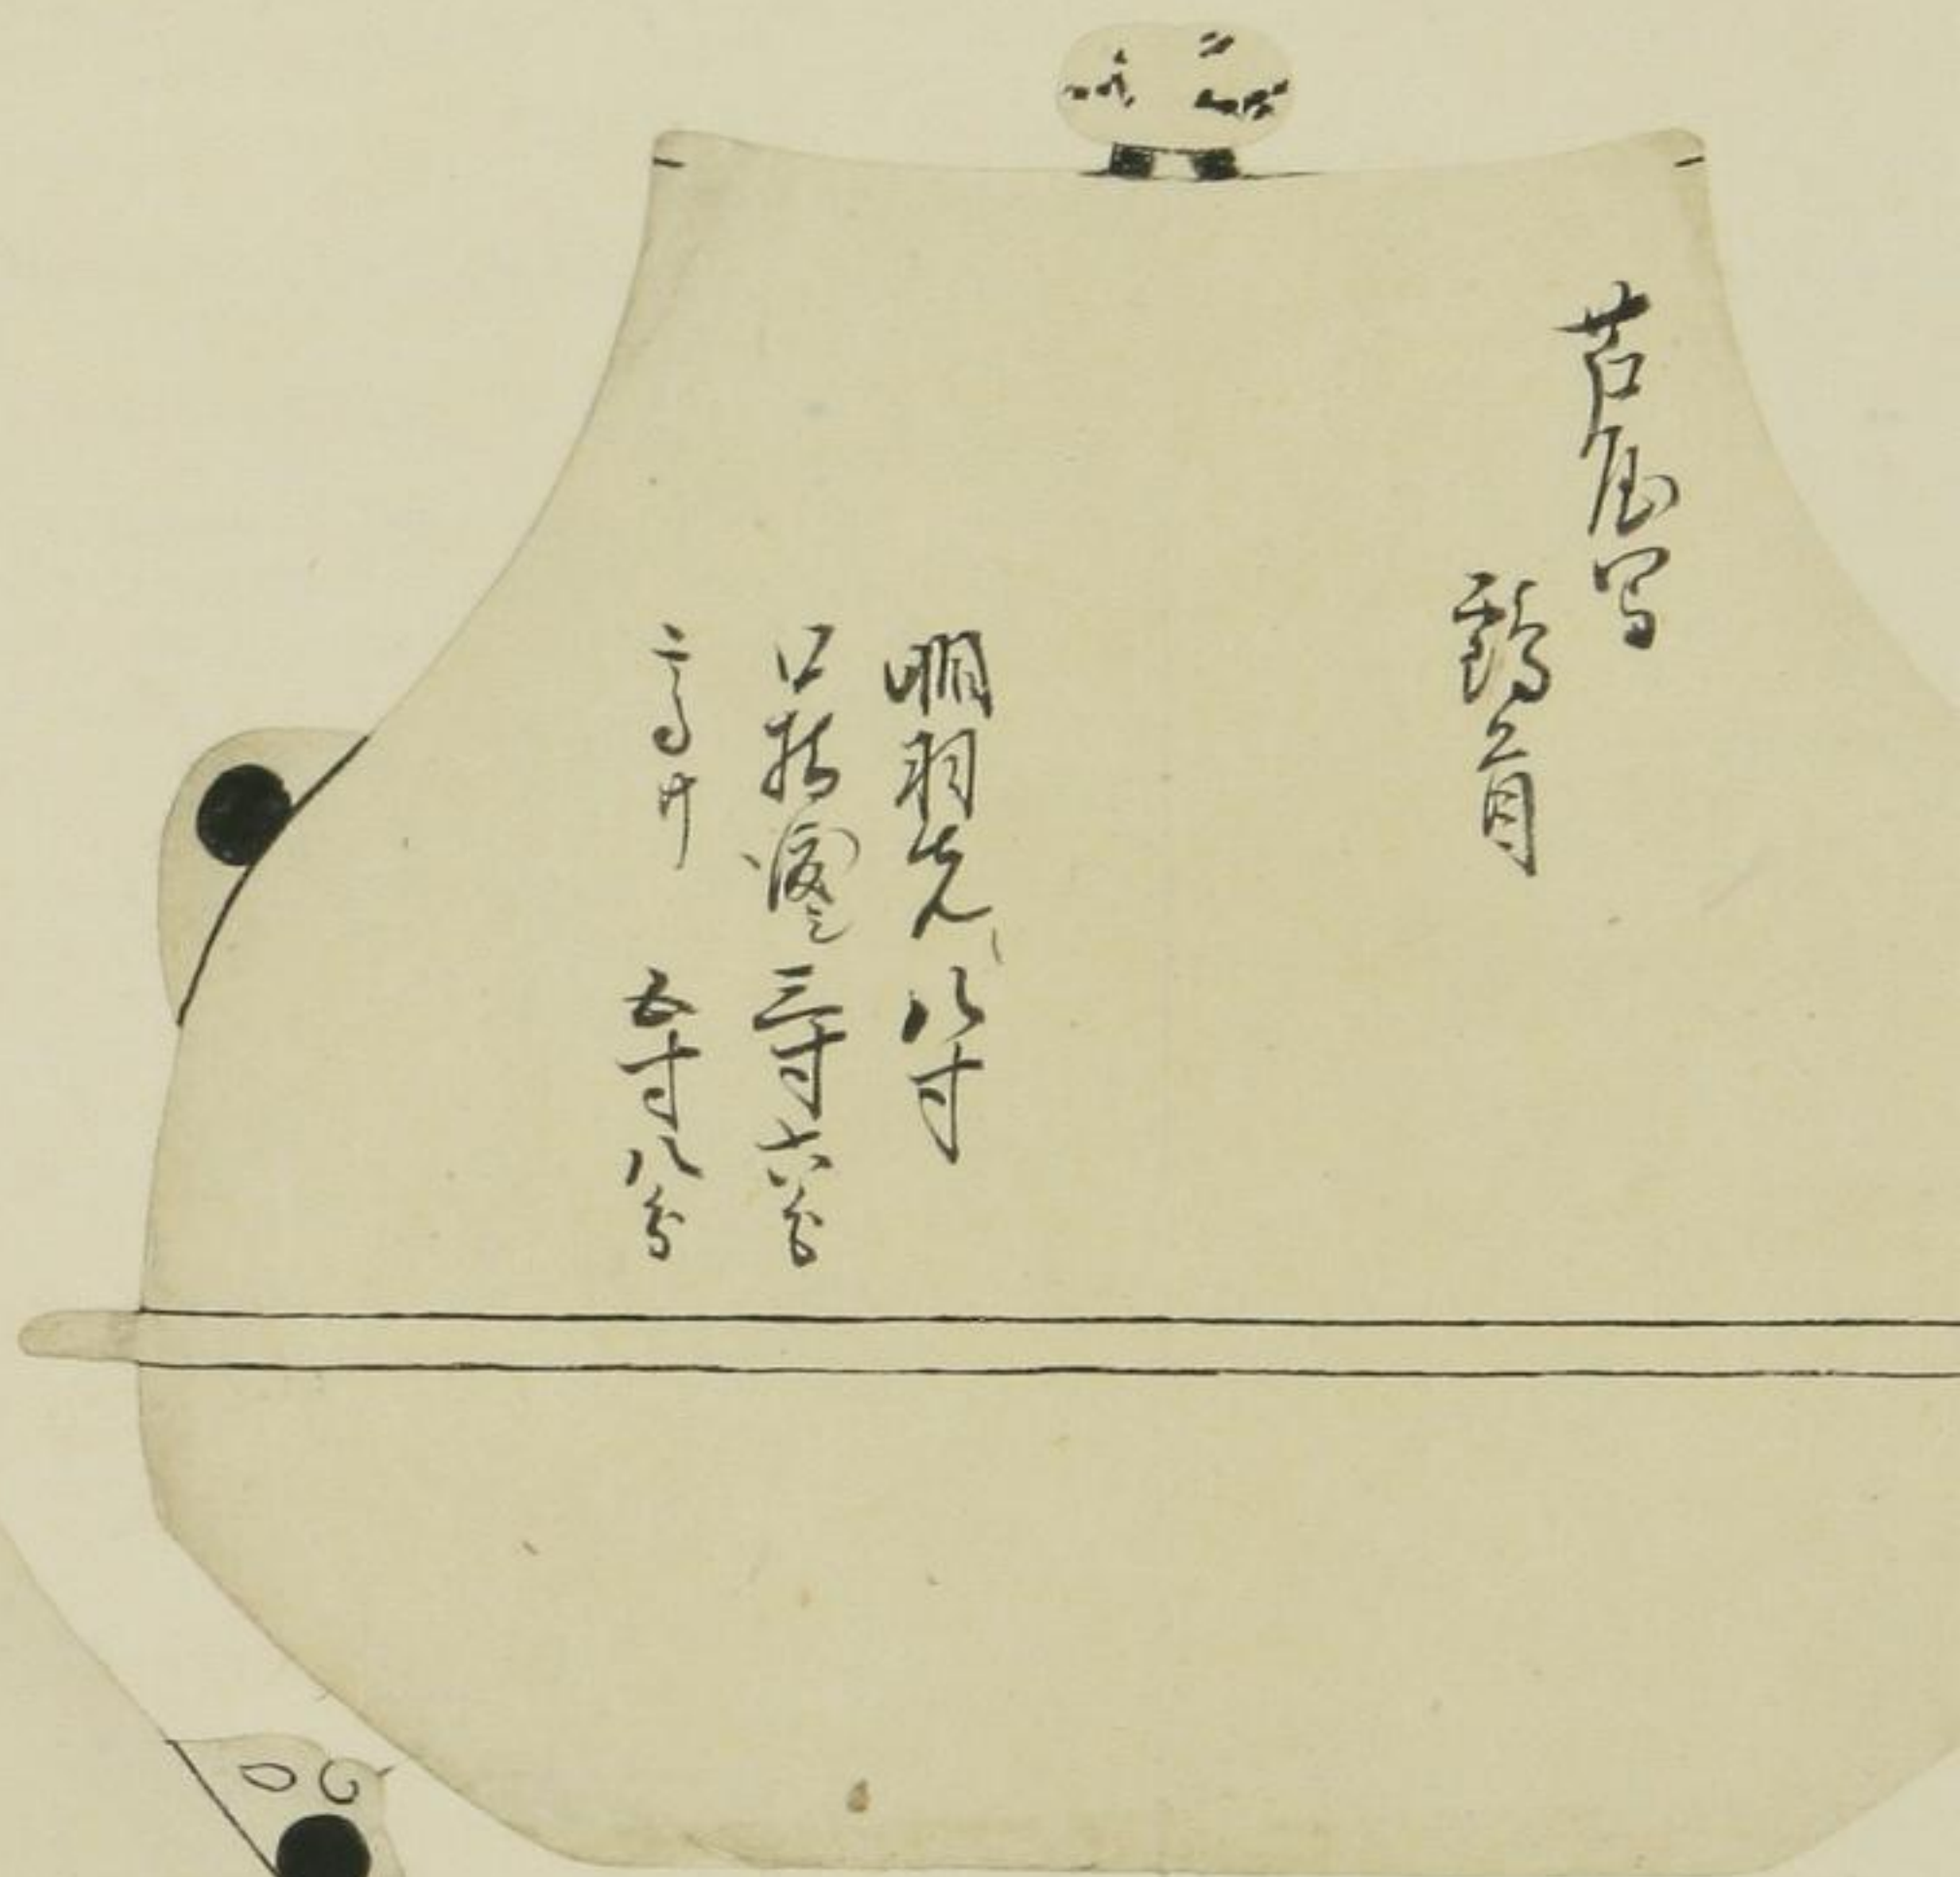 芦屋写
霰
胴羽先 八寸
口指渡 三寸六分
高サ 五寸八分